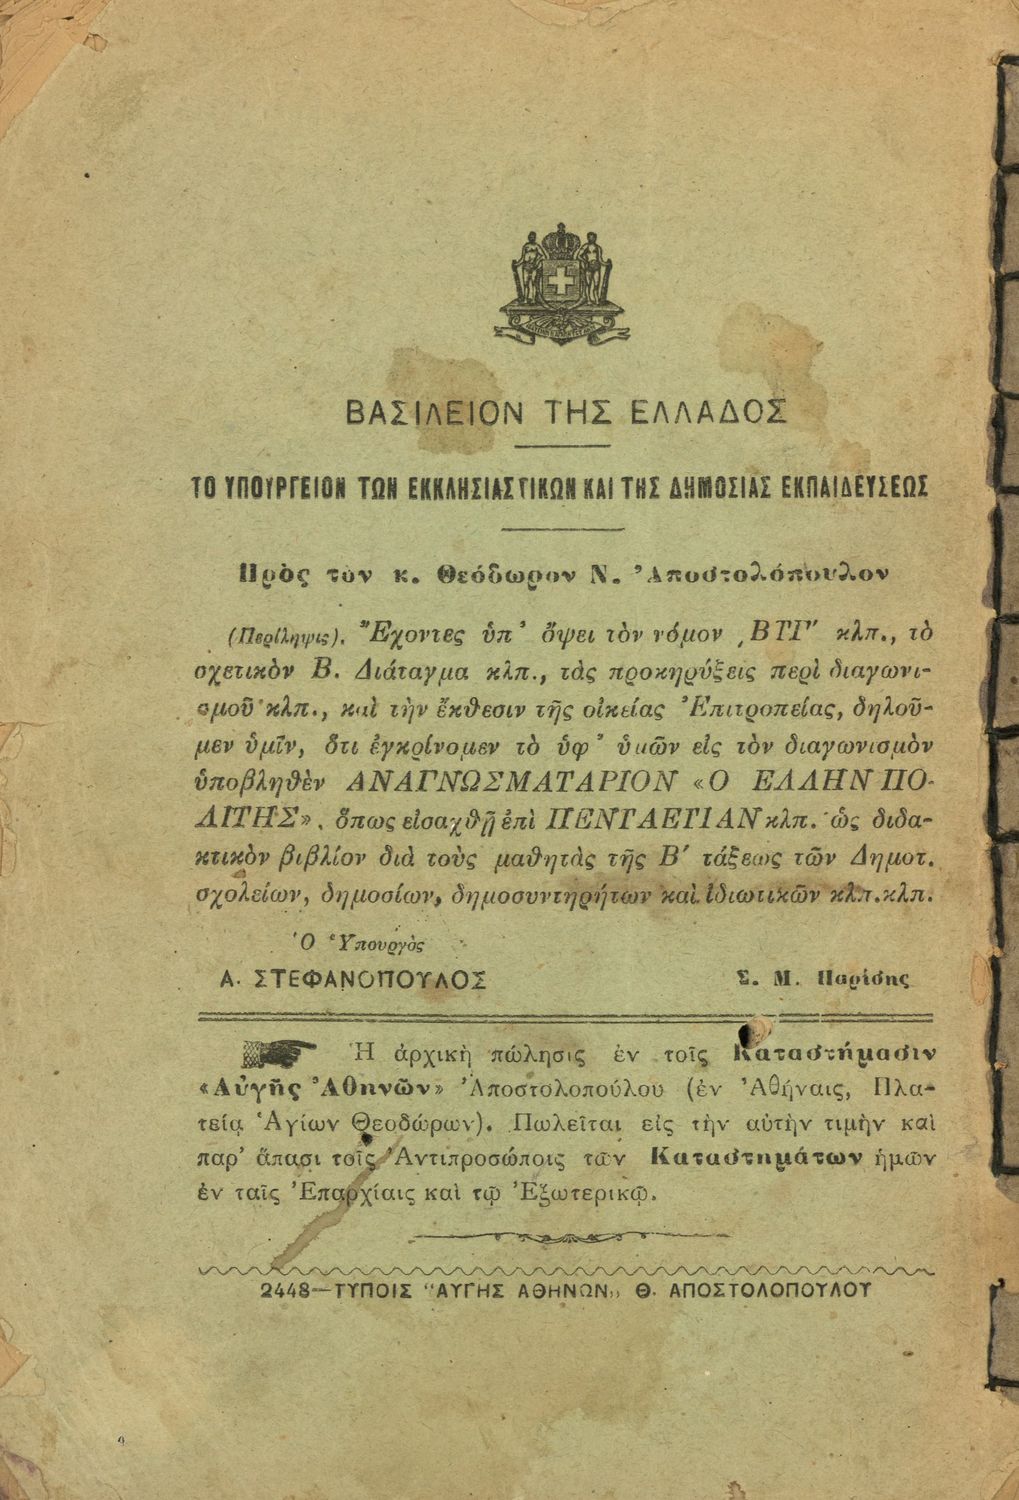 ΒΑΣΙΛΕΙΟΝ ΤΗΣ ΕΛΛΑΔΟΣ
ΤΟ ΥΠΟΥΡΓΕΙΟΝ ΤΩΝ ΕΚΚΛΗΣΙΑΣΤΙΚΩΝ ΚΑΙ ΤΗΣ ΔΗΜΟΣΙΑΣ ΕΚΠΑΙΔΕΥΣΕΩΣ
Πρὸς τὸν κ. Θεόδωρον Ν. Ἀποστολόπουλον
(Περίληψις). Ἔχοντες ὑπ' ὄψει τὸν νόμον ͵ΒΤΓ' κλπ., τὸ
σχετικὸν Β. Διάταγμα κλπ., τὰς προκηρύξεις περὶ διαγωνι-
σμοῦ κλπ., καὶ τὴν ἔκθεσιν τῆς οἰκείας Ἐπιτροπείας, δηλοῦ-
μεν ὑμῖν, ὅτι ἐγκρίνομεν τὸ ὑφ' ὑμῶν εἰς τὸν διαγωνισμὸν
ὑποβληθὲν ΑΝΑΓΝΩΣΜΑΤΑΡΙΟΝ «Ο ΕΛΛΗΝ ΠΟ-
ΛΙΤΗΣ», ὅπως εἰσαχθῇ ἐπὶ ΠΕΝΤΑΕΤΙΑΝ κλπ. ὡς διδα-
κτικὸν βιβλίον διὰ τοὺς μαθητὰς τῆς Β' τάξεως τῶν Δημοτ.
σχολείων, δημοσίων, δημοσυντηρήτων καὶ ἰδιωτικῶν κλπ.κλπ.
Ὁ Ὑπουργὸς
Α. ΣΤΕΦΑΝΟΠΟΥΛΟΣ Σ. Μ. Παρίσης
Ἡ ἀρχικὴ πώλησις ἐν τοῖς Καταστήμασιν
«Αὐγῆς Ἀθηνῶν» Ἀποστολοπούλου (ἐν Ἀθήναις, Πλα-
τεία Ἁγίων Θεοδώρων). Πωλεῖται εἰς τὴν αὐτὴν τιμὴν καὶ
παρ' ἅπασι τοῖς Ἀντιπροσώποις τῶν Καταστημάτων ἡμῶν
ἐν ταῖς Ἐπαρχίαις καὶ τῷ Ἐξωτερικῷ.
2448—ΤΥΠΟΙΣ "ΑΥΓΗΣ ΑΘΗΝΩΝ„ Θ. ΑΠΟΣΤΟΛΟΠΟΥΛΟΥ